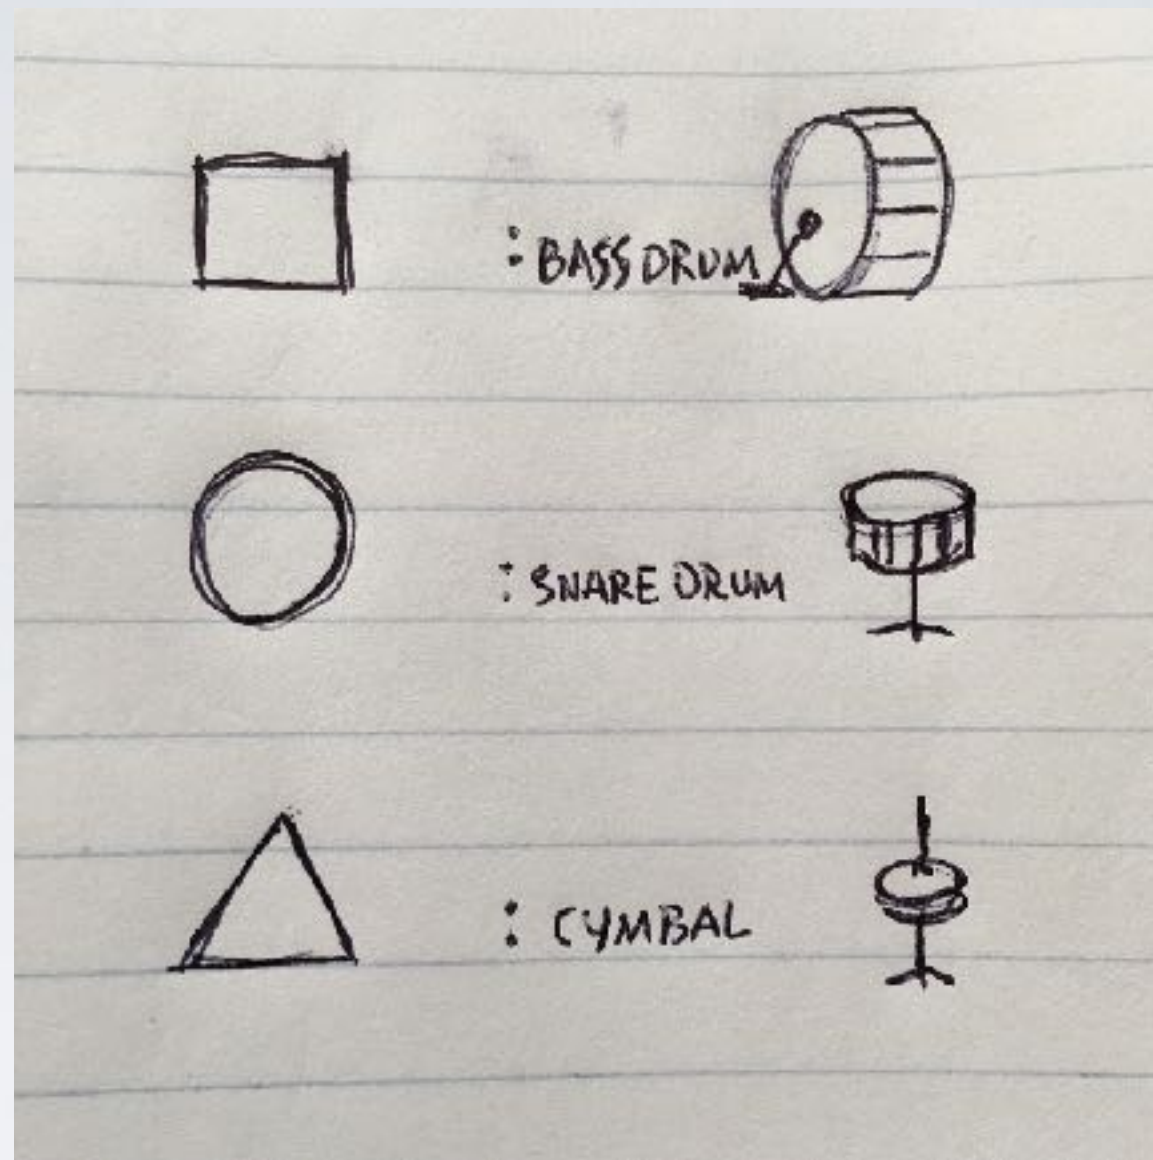 : BASS DRUM
: SNARE DRUM
: CYMBAL